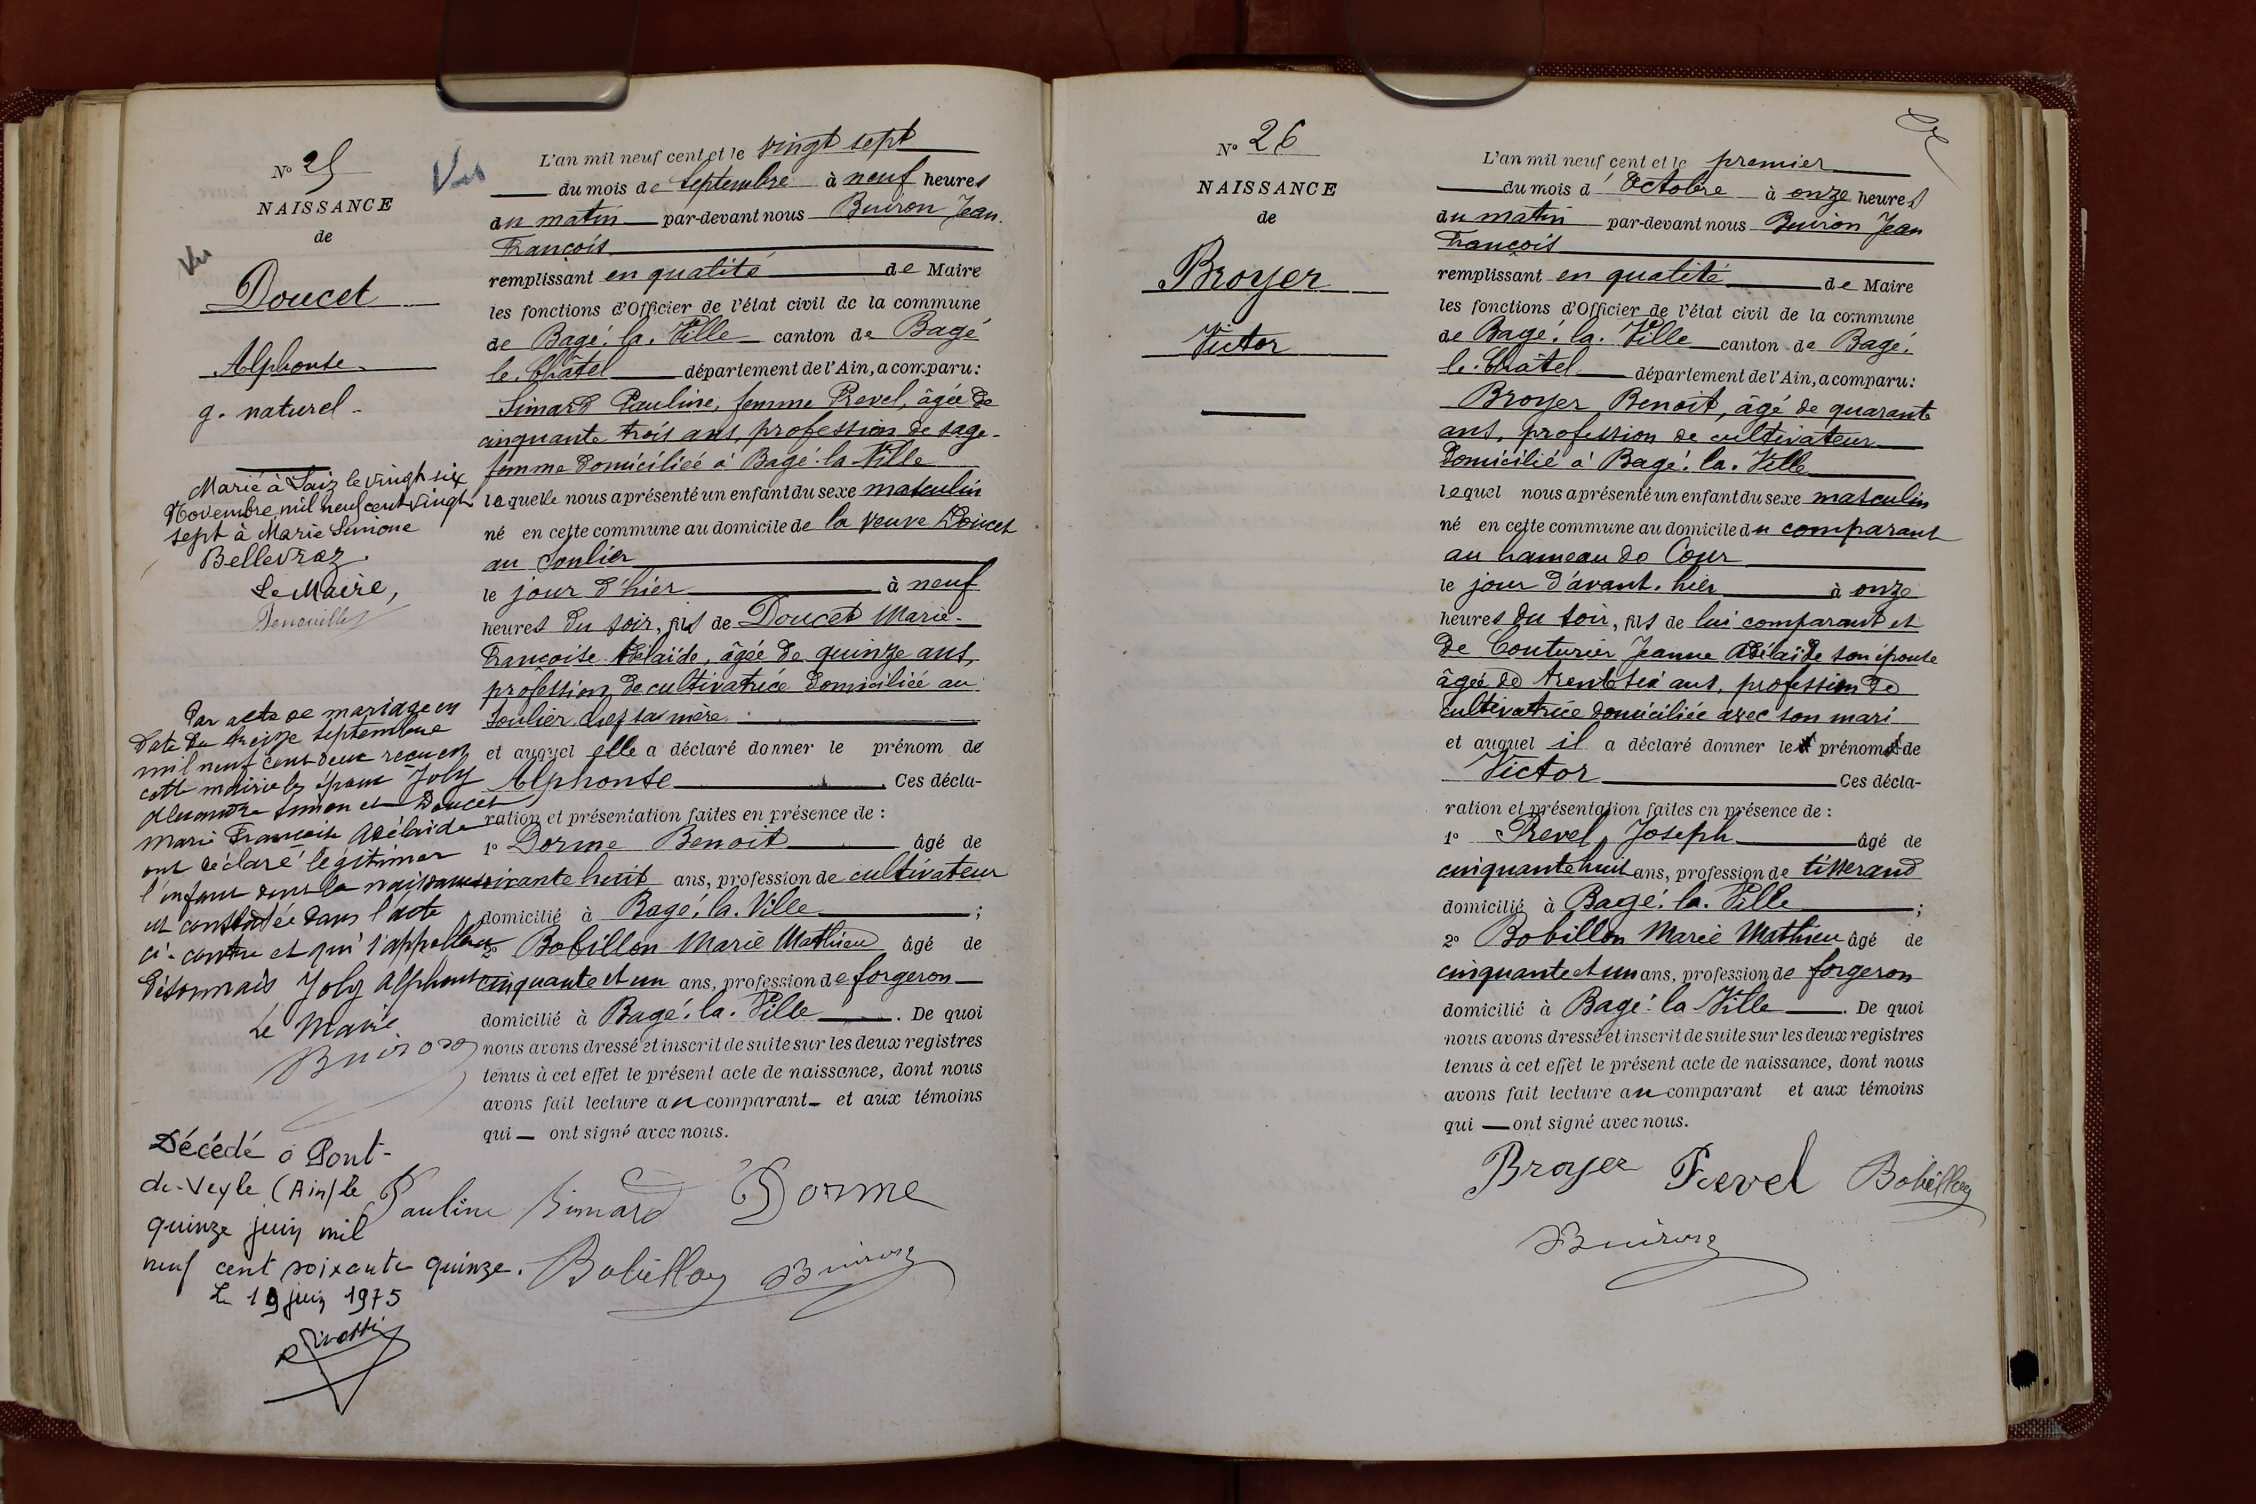 Nº 25
NAISSANCE
de
Vu
Doucet
Alphonse
g. naturel
Marié à Laiz le vingt six
Novembre mil neuf cent vingt
sept à Marie Simone
Bellevraz.
Le Maire,
Par acte de mariage en
date du treize septembre
mil neuf cent deux reçu en
cette mairie les époux Joly
Alexandre Simon et Doucet
Marie Françoise Adélaïde
ont déclaré légitimer
l'enfant dont la naissance
est constatée dans l'acte
ci-contre et qui s'appellera
désormais Joly Alphonse
Le Maire
Buiron
Décédé à Pont-
de-Veyle (Ain) le
quinze juin mil
neuf cent soixante quinze.
Le 19 juin 1975
Vu
L'an mil neuf cent et le vingt sept
du mois de Septembre à neuf heures
du matin par-devant nous Buiron Jean
François
remplissant en qualité de Maire
les fonctions d'Officier de l'état civil de la commune
de Bagé-la-Ville canton de Bagé
le-Châtel département de l'Ain, a comparu :
Simard Pauline, femme Prevel, âgée de
cinquante trois ans, profession de sage-
femme domiciliée à Bagé-la-Ville
laquelle nous a présenté un enfant du sexe masculin
né en cette commune au domicile de la veuve Doucet
au Soulier
le jour d'hier à neuf
heures du soir, fils de Doucet Marie-
Françoise Adélaïde, âgée de quinze ans,
profession de cultivatrice domiciliée au
Soulier chez sa mère
et auquel elle a déclaré donner le prénom de
Alphonse Ces décla-
ration et présentation faites en présence de :
1º Dorme Benoit âgé de
soixante huit ans, profession de cultivateur
domicilié à Bagé-la-Ville ;
2º Bobillon Marie Mathieu âgé de
cinquante et un ans, profession de forgeron
domicilié à Bagé-la-Ville . De quoi
nous avons dressé et inscrit de suite sur les deux registres
tenus à cet effet le présent acte de naissance, dont nous
avons fait lecture au comparant et aux témoins
qui ont signé avec nous.
Pauline Simard Dorme
Bobillon Buiron
Nº 26
NAISSANCE
de
Broyer
Victor
L'an mil neuf cent et le premier
du mois d'Octobre à onze heures
du matin par-devant nous Buiron Jean
François
remplissant en qualité de Maire
les fonctions d'Officier de l'état civil de la commune
de Bagé-la-Ville canton de Bagé-
le-Châtel département de l'Ain, a comparu :
Broyer Benoit, âgé de quarante
ans, profession de cultivateur
domicilié à Bagé-la-Ville
lequel nous a présenté un enfant du sexe masculin
né en cette commune au domicile du comparant
au hameau de Cour
le jour d'avant-hier à onze
heures du soir, fils de lui comparant et
de Couturier Jeanne Adélaïde son épouse
âgée de trente six ans, profession de
cultivatrice domiciliée avec son mari
et auquel il a déclaré donner le prénom de
Victor Ces décla-
ration et présentation faites en présence de :
1º Prevel Joseph âgé de
cinquante huit ans, profession de tisserand
domicilié à Bagé-la-Ville ;
2º Bobillon Marie Mathieu âgé de
cinquante et un ans, profession de forgeron
domicilié à Bagé-la-Ville . De quoi
nous avons dressé et inscrit de suite sur les deux registres
tenus à cet effet le présent acte de naissance, dont nous
avons fait lecture au comparant et aux témoins
qui ont signé avec nous.
Broyer Prevel Bobillon
Buiron